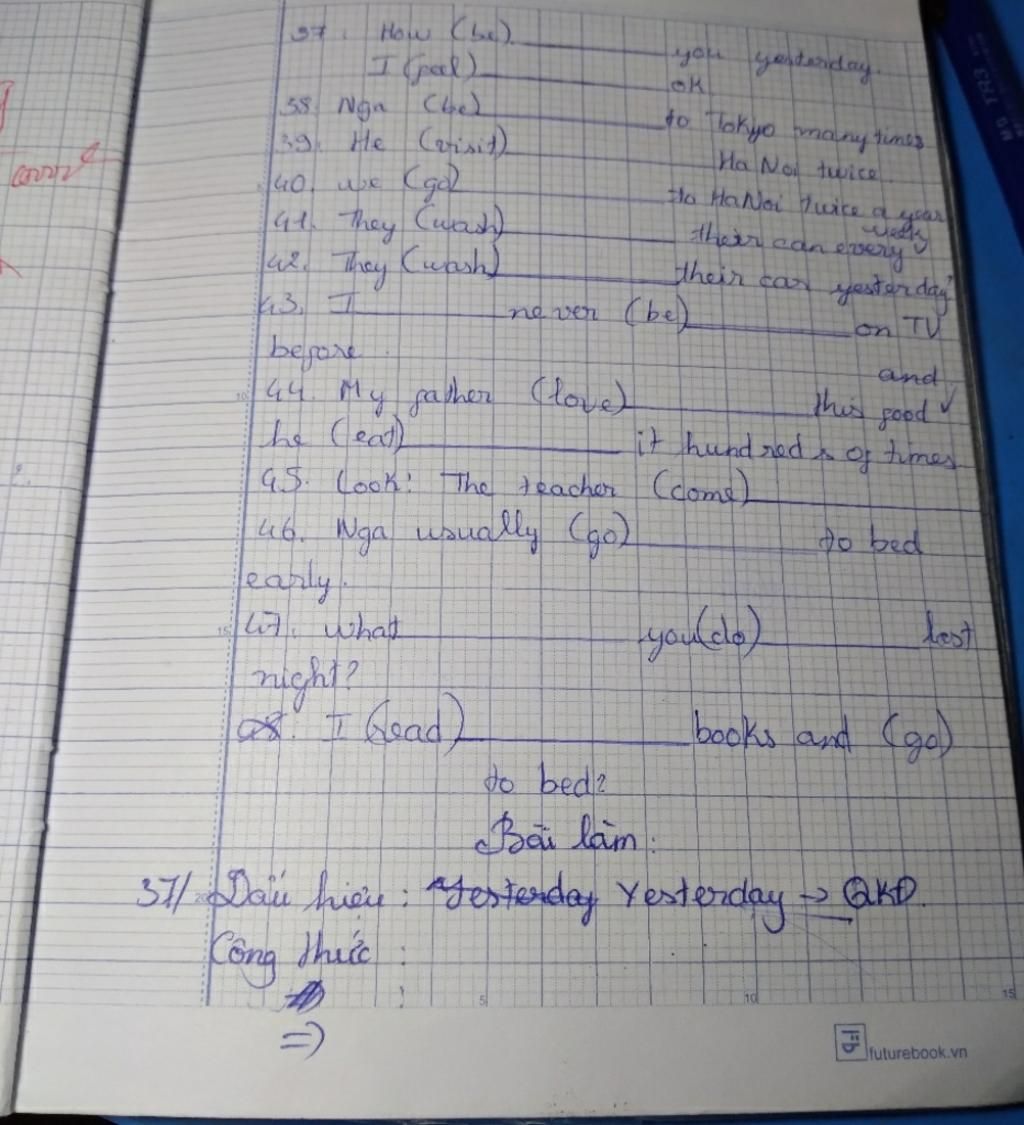 37. How (be) ____ you yesterday.
I (feel) ____ ok
38. Nga (be) ____ to Tokyo many times
39. He (visit) ____ Ha Noi twice
40. we (go) ____ to HaNoi twice a year
41. They (wash) ____ their car every week
42. They (wash) ____ their car yesterday
43. I ____ never (be) ____ on TV
before.
44. My father (love) ____ this food and
he (eat) ____ it hundreds of times
45. Look! The teacher (come) ____
46. Nga usually (go) ____ to bed
early.
47. what ____ you (do) ____ last
night?
I (read) ____ books and (go)
to bed?
Bài làm:
37/ Dấu hiệu: Yesterday Yesterday → QKĐ.
Công thức :
:
=>
futurebook.vn
5
10
15
10
15